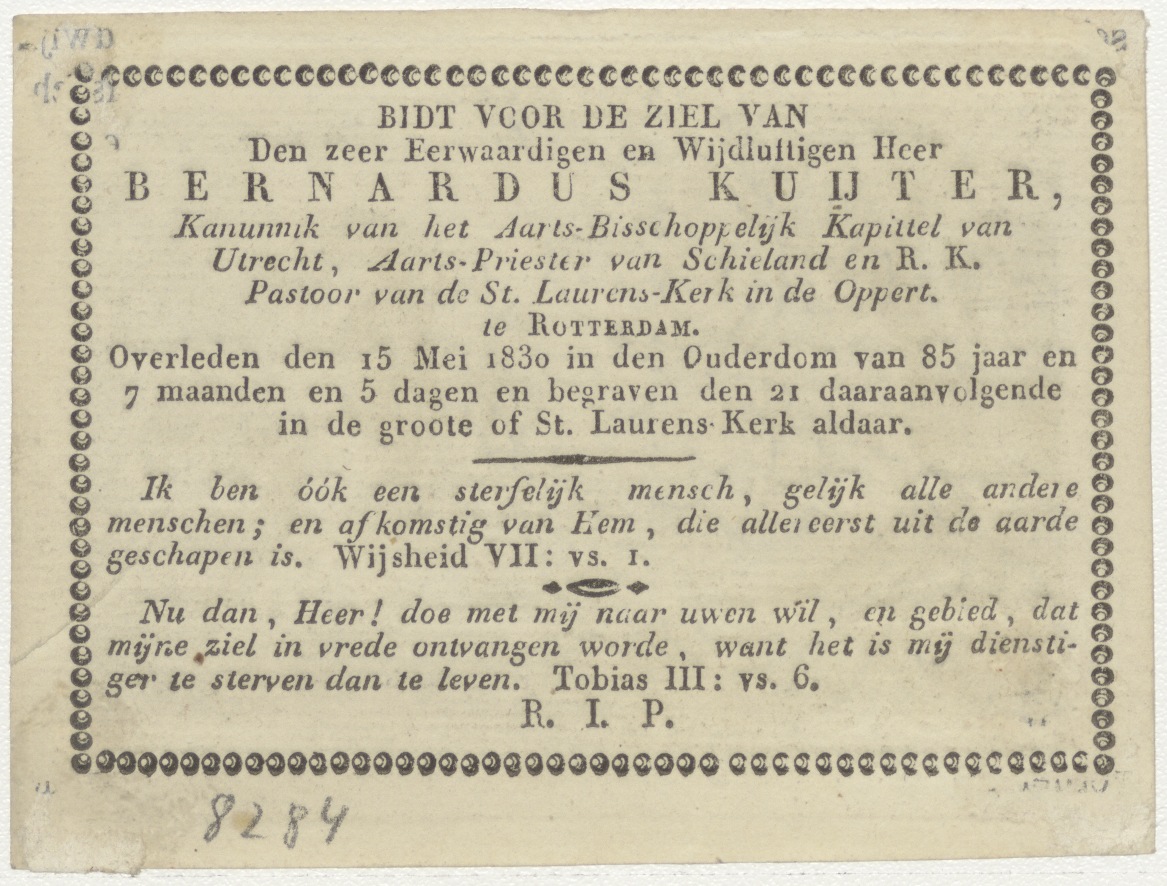 BIDT VOOR DE ZIEL VAN
Den zeer Eerwaardigen en Wijdluftigen Heer
BERNARDUS KUIJTER,
Kanunnik van het Aarts-Bisschoppelijk Kapittel van
Utrecht, Aarts-Priester van Schieland en R. K.
Pastoor van de St. Laurens-Kerk in de Oppert.
te ROTTERDAM.
Overleden den 15 Mei 1830 in den Ouderdom van 85 jaar en
7 maanden en 5 dagen en begraven den 21 daaraanvolgende
in de groote of St. Laurens-Kerk aldaar.
Ik ben óók een sterfelijk mensch, gelijk alle andere
menschen; en afkomstig van Hem, die allereerst uit de aarde
geschapen is. Wijsheid VII: vs. 1.
Nu dan, Heer! doe met mij naar uwen wil, en gebied, dat
mijne ziel in vrede ontvangen worde, want het is mij diensti-
ger te sterven dan te leven. Tobias III: vs. 6.
R. I. P.
8284